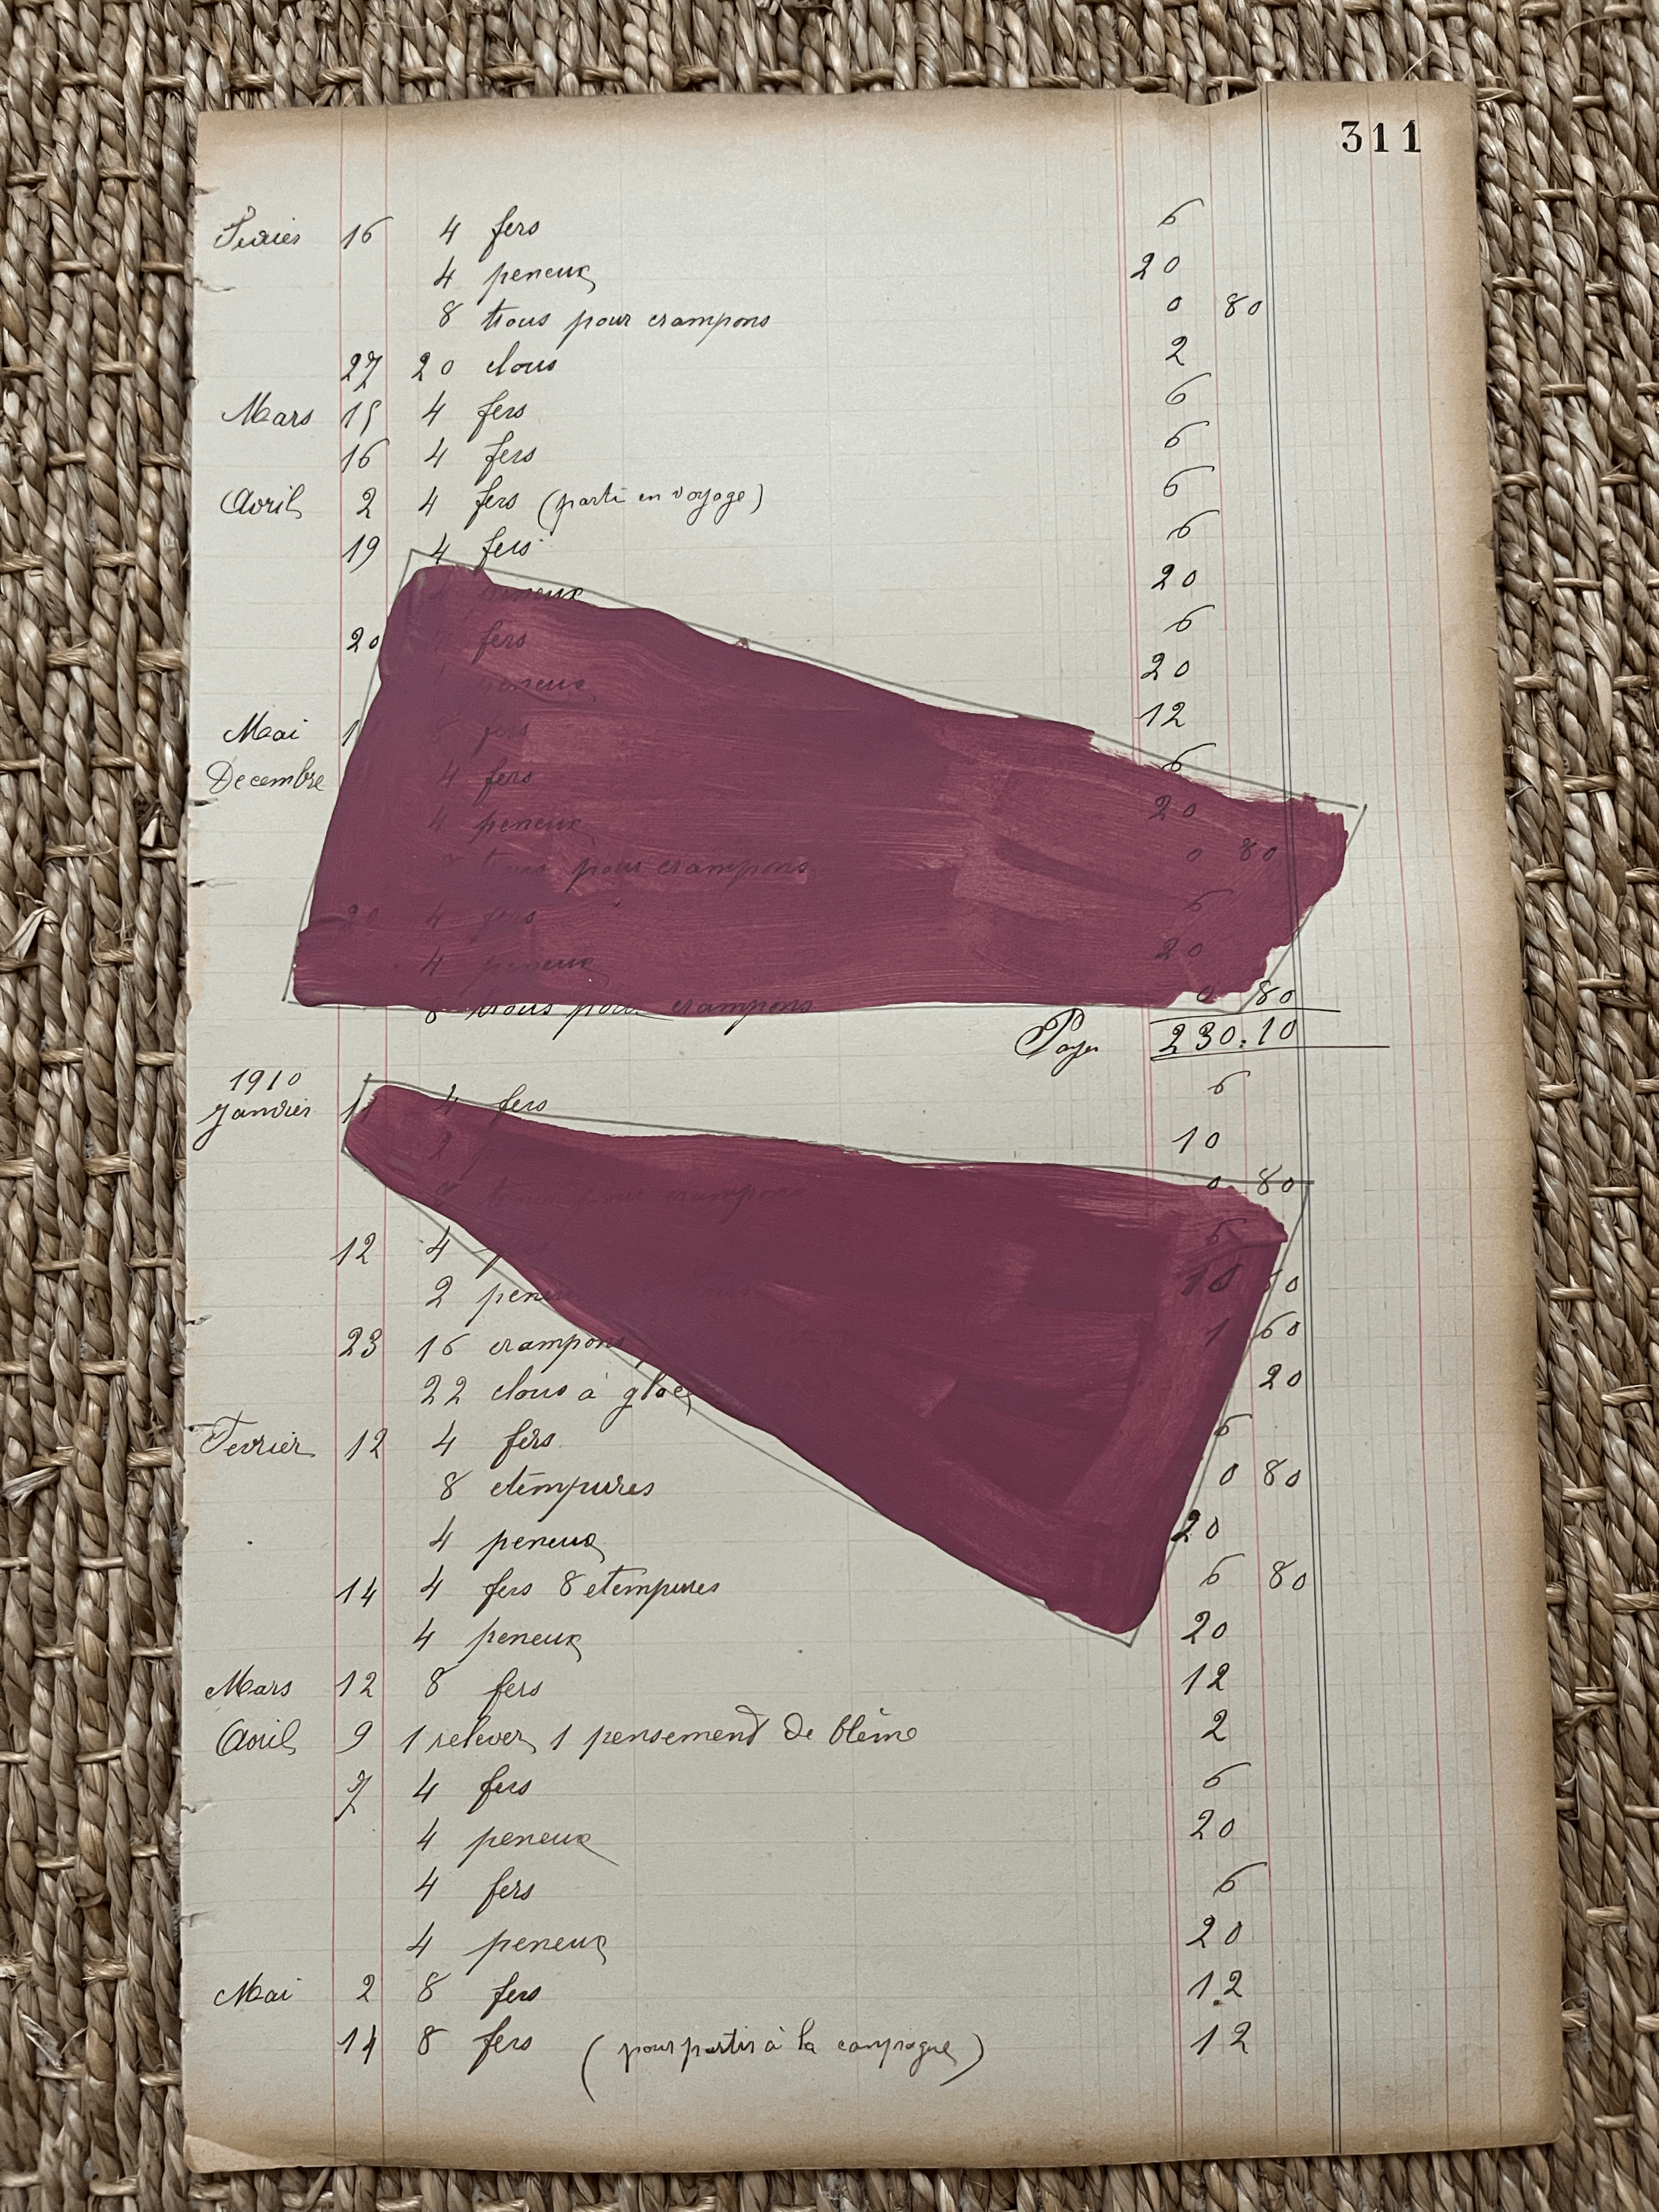 311
Fevrier 16 4 fers 6
4 peneux 20
8 trous pour crampons 0 80
27 20 clous 2
Mars 15 4 fers 6
16 4 fers 6
Avril 2 4 fers (parti en voyage) 6
19 4 fers 6
peneux 20
20 fers 6
peneux 20
Mai 1 8 fers 12
Decembre 4 fers 6
4 peneux 20
trous pour crampons 0 80
20 4 fers 6
4 peneux 20
8 trous pour crampons 0 80
Payer 230.10
1910
Janvier 4 fers 6
2 10
trous pour crampons 0 80
12 4 6
2 peneux 10
23 16 crampons 1 60
22 clous à glace 20
Fevrier 12 4 fers 6
8 etempures 0 80
4 peneux 20
14 4 fers 8 etempures 6 80
4 peneux 20
Mars 12 8 fers 12
Avril 9 1 relever 1 pensement de bleime 2
7 4 fers 6
4 peneux 20
4 fers 6
4 peneux 20
Mai 2 8 fers 12
14 8 fers (pour partir à la campagne) 12